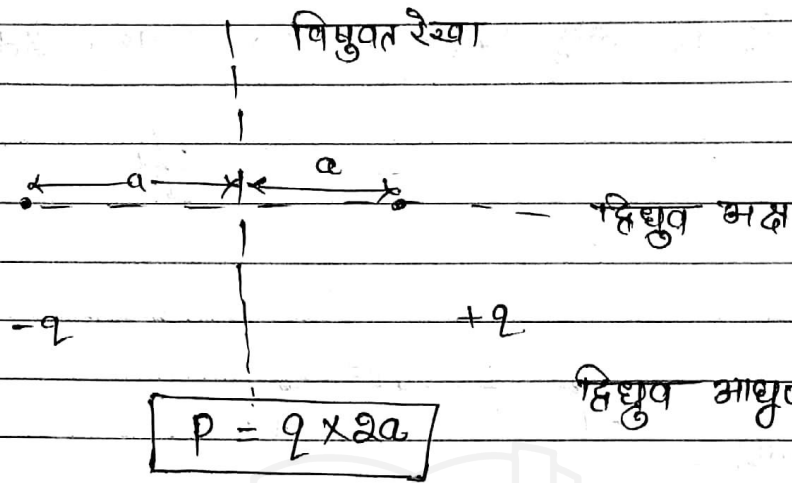 विषुवत रेखा
a a
द्विध्रुव अक्ष
-q +q
द्विध्रुव
P = q × 2a